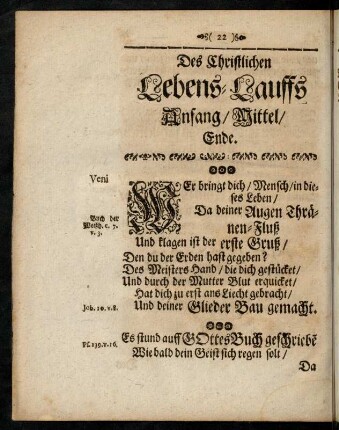 ( 22 )
Des Christlichen
Lebens-Lauffs
Anfang/ Mittel/
Ende.
Veni
WEr bringt dich/ Mensch/ in die-
ses Leben/
Da deiner Augen Thrä-
nen-Fluß
Buch der
Weißh. c. 7.
v. 3.
Und klagen ist der erste Gruß/
Den du der Erden hast gegeben?
Des Meisters Hand/ die dich gestücket/
Und durch der Mutter Blut erquicket/
Hat dich zu erst ans Liecht gebracht/
Job. 10. v. 8.
Und deiner Glieder Bau gemacht.
Es stund auff GOttes Buch geschriebē
Ps. 139. v. 16.
Wie bald dein Geist sich regen solt/
Da